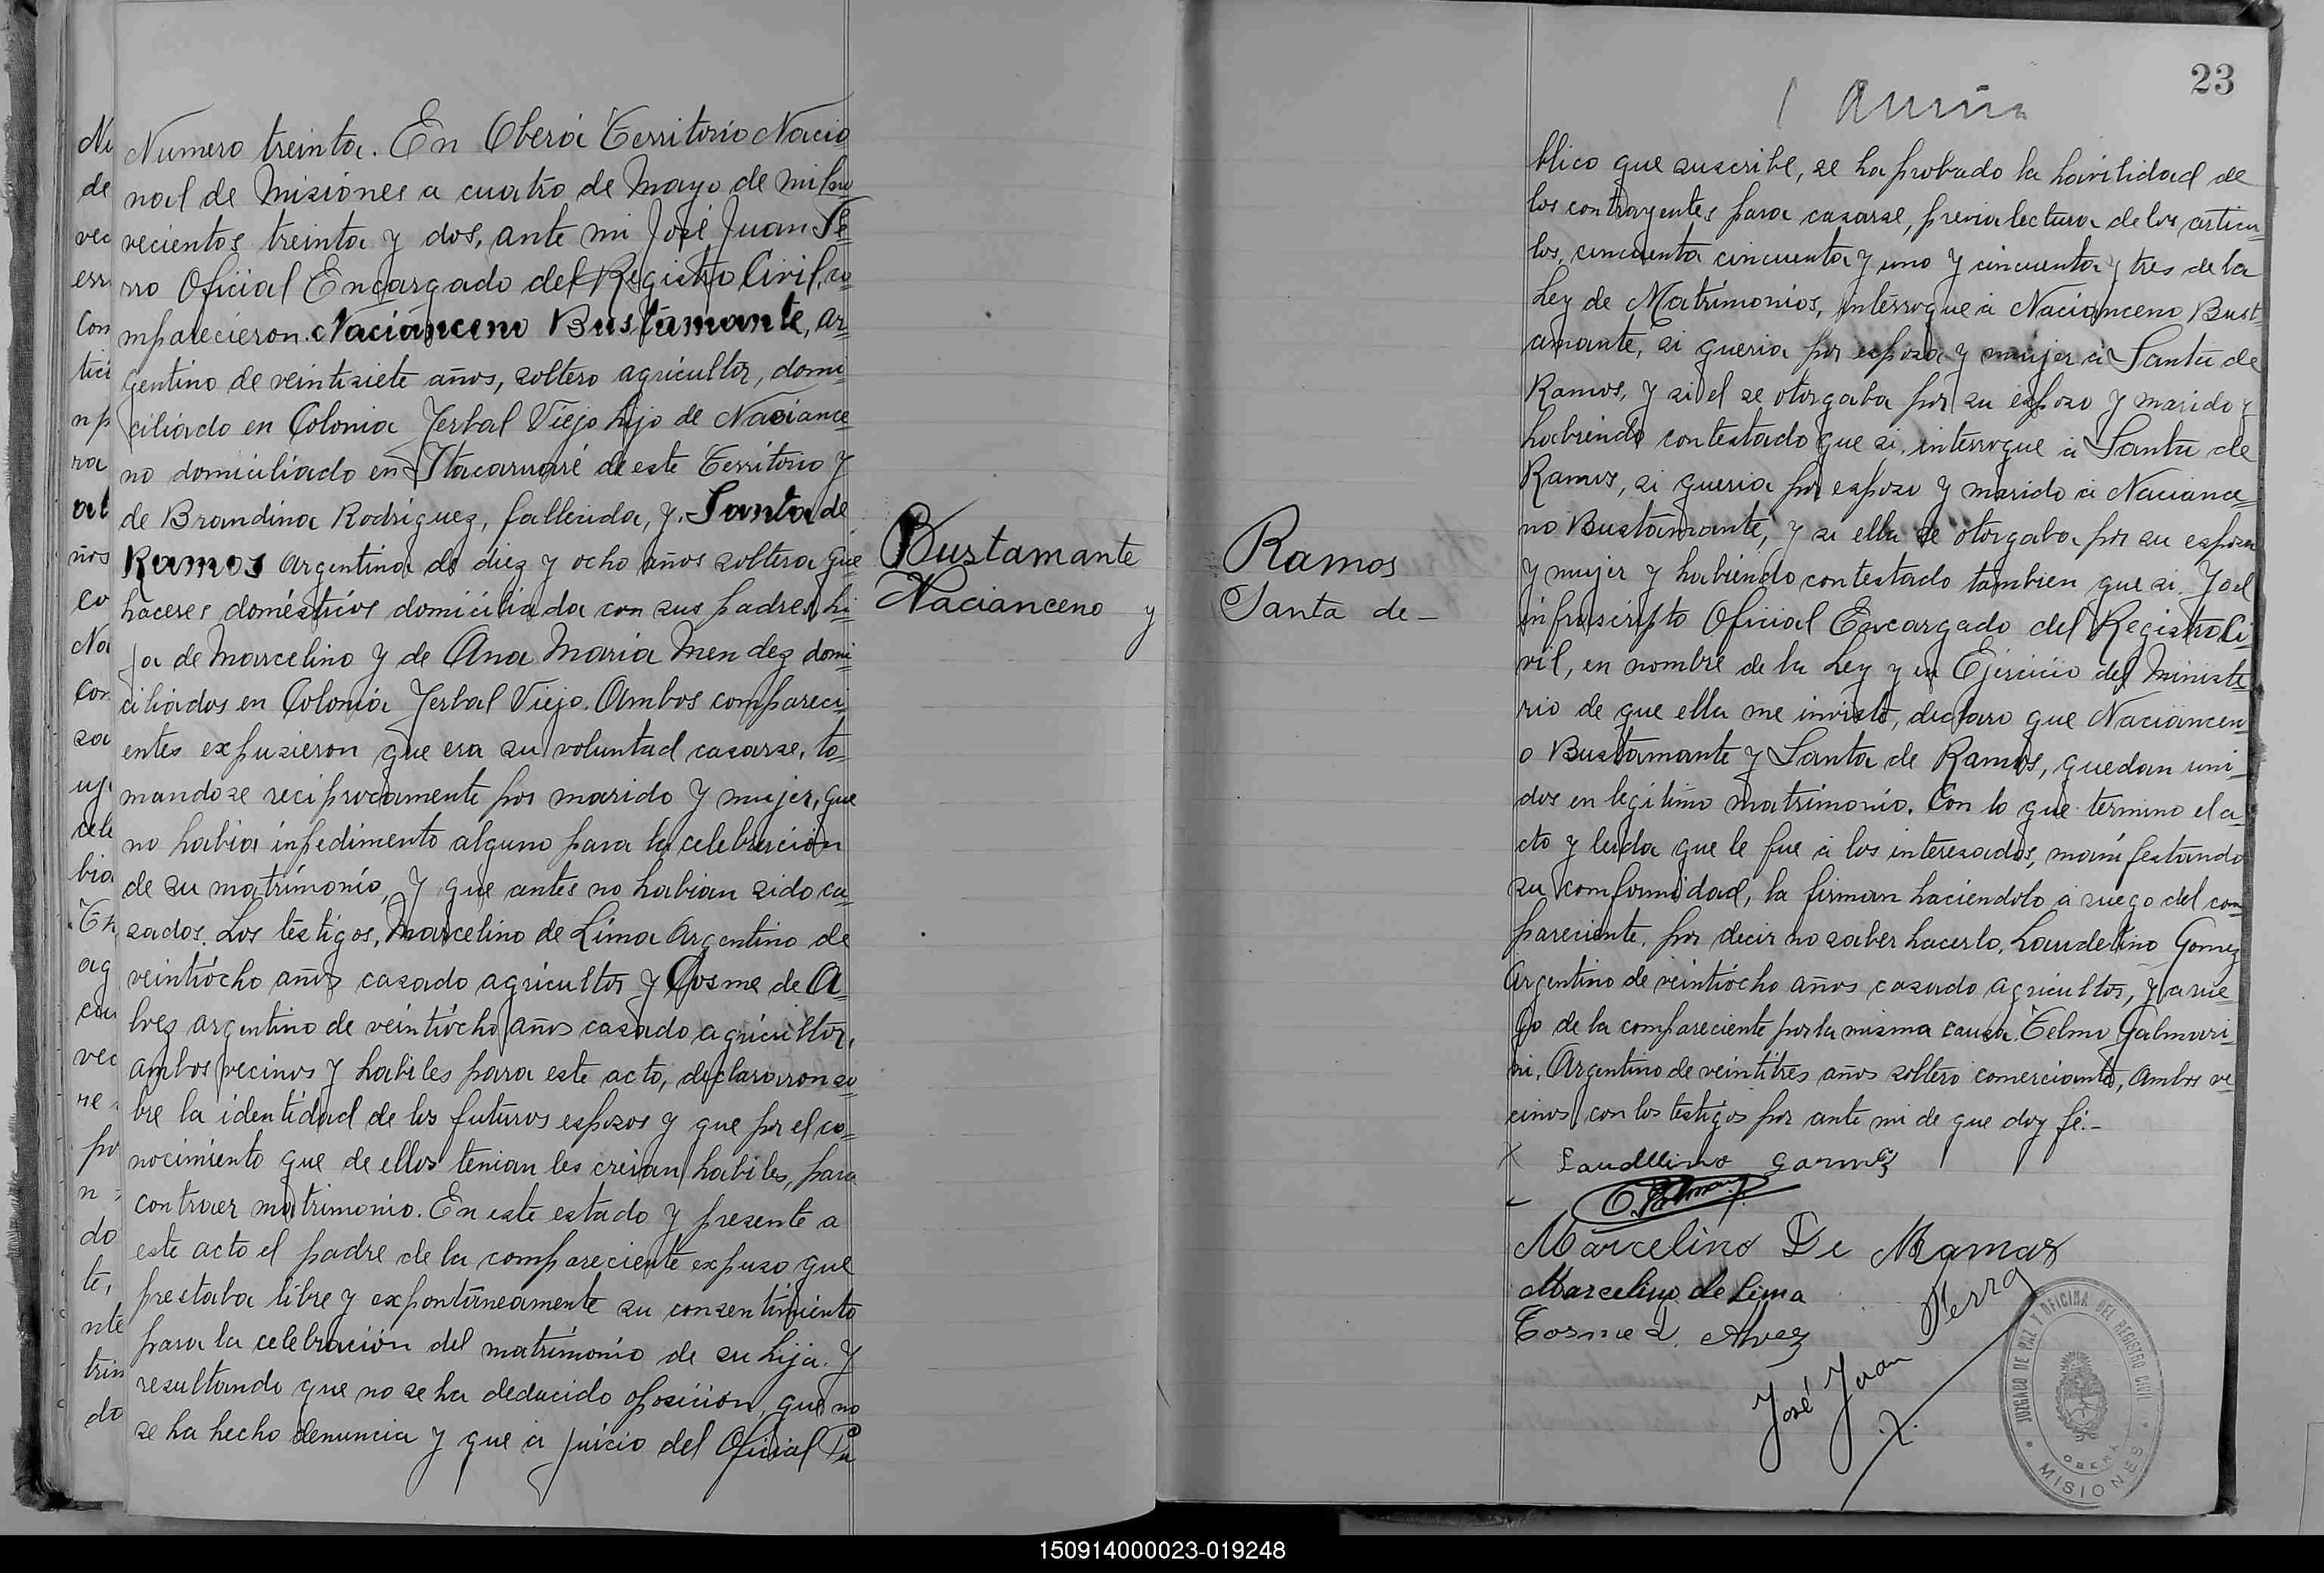 Numero treinta. En Oberá Territorio Nacio
nal de Misiones a cuatro de Mayo de mil no
vecientos treinta y dos, ante mi José Juan Se=
rro Oficial Encargado del Registro Civil, co=
mparecieron. Nacianceno Bustamante, Ar=
gentino de veintisiete años, soltero agricultor, domi=
ciliado en Colonia Yerbal Viejo hijo de Naciance=
no domiciliado en Itacaruaré de este Territorio y
de Brandina Rodriguez, fallecida, y. Santa de
Ramos Argentina de diez y ocho años soltera que
haceres domésticos domiciliada con sus padres hi=
ja de Marcelino y de Ana Maria Mendez domi=
ciliados en Colonia Yerbal Viejo. Ambos compareci=
entes expusieron que era su voluntad casarse, to=
mandose reciprocamente por marido y mujer, que
no habia inpedimento alguno para la celebración
de su matrimonio, y que antes no habian sido ca=
sados. Los testigos, Marcelino de Lima Argentino de
veintiocho años casado agricultor y Cosme de A=
lvez argentino de veintiócho años casado agricultor,
ambos vecinos y habiles para este acto, declararon so=
bre la identidad de los futuros esposos y que por el co=
nocimiento que de ellos tenian les creian habiles, para
contraer matrimonio. En este estado y presente a
este acto el padre de la compareciente expuso que
prestaba libre y expontáneamente su consentimiento
para la celebración del matrimonio de su hija. Y
resultando que no se ha deducido oposición, que no
se ha hecho denuncia y que a juicio del Oficial Pu
Bustamante
Nacianceno y
Ramos
Santa de -
23
blico que suscribe, se ha probado la havilidad de
los contrayentes para casarse, previa lectura de los articu=
los, cincuenta cincuenta y uno y cincuenta y tres de la
Ley de Matrimonios, interrogue a Nacianceno Bust=
amante, si queria por esposa y mujer a Santa de
Ramos, y si el se otorgaba por su esposo y marido y
habiendo contestado que si. interrogue a Santa de
Ramos, si queria por esposo y marido a Naciance=
no Bustamante, y si ella se otorgaba por su esposa
y mujer y habiendo contestado tambien que si. Yo el
infrascripto Oficial Encargado del Registro Ci=
vil, en nombre de la Ley y en Ejercicio del Ministe=
rio de que ella me inviste, declaro que Naciancen=
o Bustamante y Santa de Ramos, quedan uni=
dos en legitimo matrimonio. Con lo que termino el a=
cto y leida que le fue a los interesados, manifestando
su comformidad, la firman haciendolo a ruego del com
pareciente, por decir no saber hacerlo, Laudelino Gomez
Argentino de veintiócho años casado agricultor, y a rue=
go de la compareciente por la misma causa. Telmo Galmari=
ni, Argentino de veintitres años soltero comerciante, Ambos ve=
cinos, con los testigos por ante mi de que doy fé.-
Laudelino Gomez
Marcelino De Ramos
Marcelino de Lima
Cosme d. Alvez
José Juan Serro
JUZGADO DE PAZ Y OFICINA DEL REGISTRO CIVIL
OBERA
MISIONES
150914000023-019248